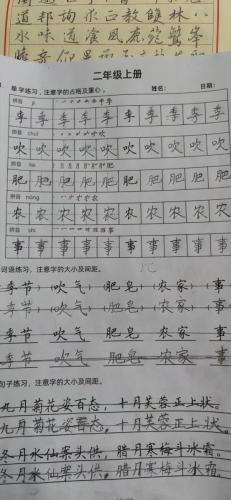 道邦询求白教雎林
水味道
二年级上册
单字练习，注意字的占格及重心。 姓名： 日期：
拼音 jì
季 季 季 季 季 季 季 季
拼音 chuī
吹 吹 吹 吹 吹 吹 吹 吹
拼音 féi
肥 肥 肥 肥 肥 肥 肥 肥
拼音 nóng
农 农 农 农 农 农 农 农
拼音 shì
事 事 事 事 事 事 事 事
词语练习，注意字的大小及间距。
季节）（吹气）（肥皂）（农家）（事
季节）（吹气）（肥皂）（农家）（事
季节 吹气 肥皂 农家 事
季节 吹气 肥皂 农家 事
句子练习，注意字的大小及间距。
九月菊花姿百态，十月芙蓉正上状。
九月菊花姿百态，十月芙蓉正上状。
冬月水仙案头供，腊月寒梅斗冰霜。
冬月水仙案头供，腊月寒梅斗冰霜。